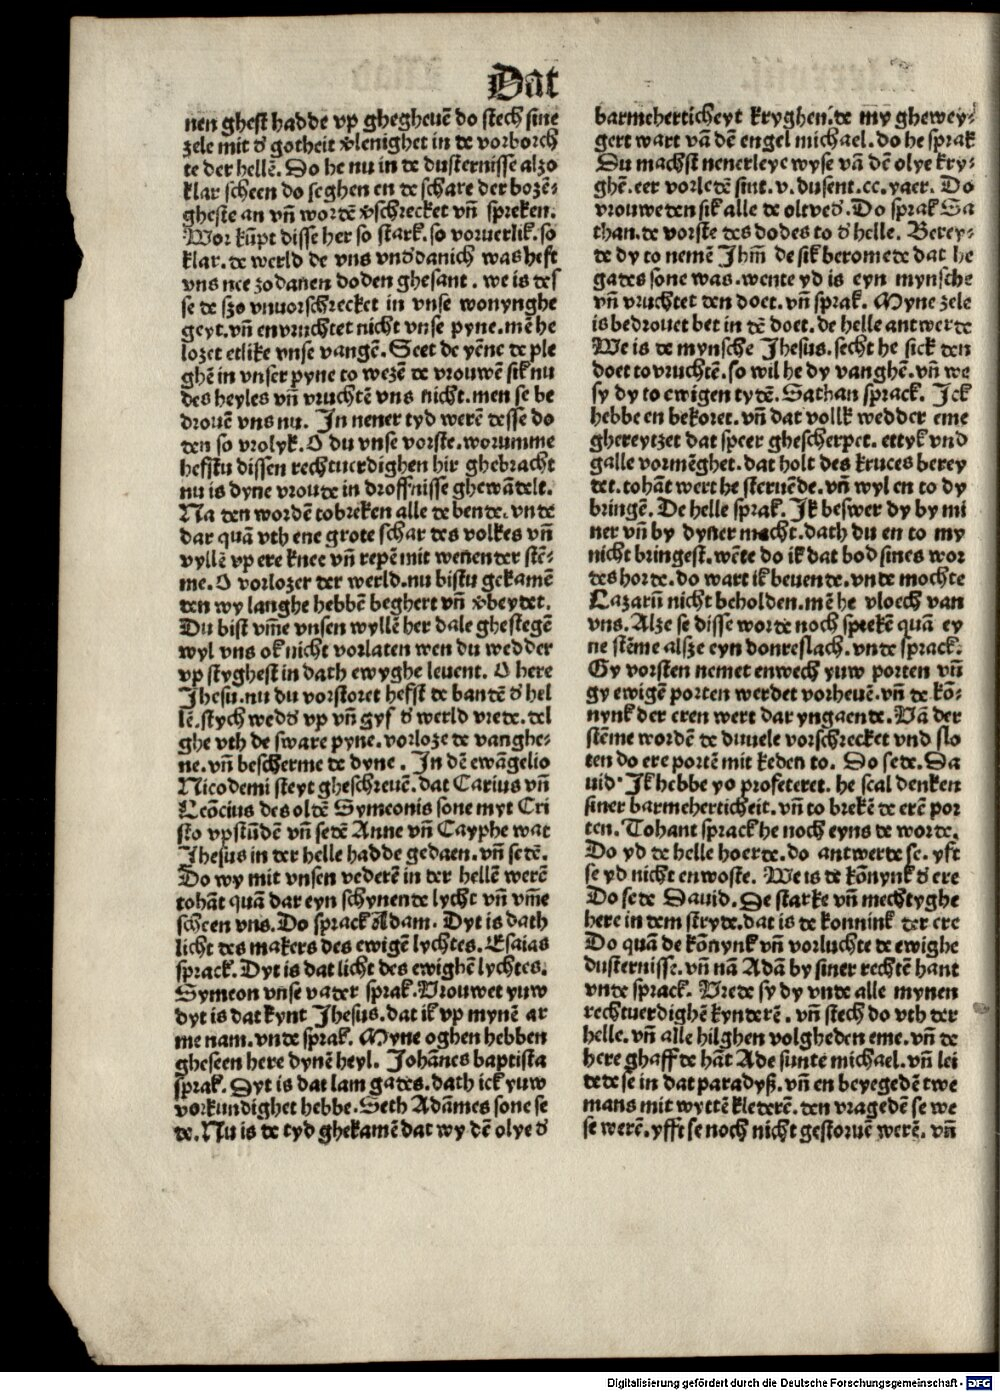 Dat
nen ghest hadde vp ghegheuē do stech sine
zele mit d̕ gotheit v̄lenighet in de vorborch
te der hellē. Do he nu in de dusternisse alzo
klar scheen do seghen en de schare der bozē-
gheste an vn̄ wordē v̄schrecket vn̄ spreken.
Wor kūpt disse her so stark. so voruerlik. so
klar. de werld de vns vnd̕danich was heft
vns nee zodanen doden ghesant. we is des
se de szo vnuorschrecket in vnse wonynghe
geyt. vn̄ envruchtet nicht vnse pyne. mē he
lozet etlike vnse vangē. Seet de yēne de ple
ghē in vnser pyne to wezē de vrouwē sik nu
des heyles vn̄ vruchtē vns nicht. men se be
drouē vns nu. In nener tyd werē desse do
den so vrolyk. O du vnse vorste. worumme
hefstu dissen rechtuerdighen hir ghebracht
nu is dyne vroude in droffnisse ghewādelt.
Na den wordē tobreken alle de bende. vnde
dar quā vth ene grote schar des volkes vn̄
vyllē vp ere knee vn̄ repē mit wenender stē-
me. O vorlozer der werld. nu bistu gekamē
den wy langhe hebbē beghert vn̄ v̄beydet.
Du bist vm̄e vnsen wyllē her dale ghestegē
wyl vns ok nicht vorlaten wen du wedder
vp styghest in dath ewyghe leuent. O here
Jhesu. nu du vorstoret hefst de bandē d̕ hel
lē. stych wed̕ vp vn̄ gyf d̕ werld vrede. del
ghe vth de sware pyne. vorloze de vanghe-
ne. vn̄ bescherme de dyne. In dē ewāgelio
Nicodemi steyt gheschreuē. dat Carius vn̄
Leōcius des oldē Symeonis sone myt Cri
sto vpstūdē vn̄ sedē Anne vn̄ Cayphe wat
Jhesus in der helle hadde gedaen. vn̄ sedē.
Do wy mit vnsen vederē in der hellē werē
tohāt quā dar eyn schynende lycht vn̄ vm̄e
scheen vns. Do sprack Adam. Dyt is dath
licht des makers des ewigē lychtes. Esaias
sprack. Dyt is dat licht des ewighē lychtes.
Symeon vnse vader sprak. Vrouwet yuw
dyt is dat kynt Jhesus. dat ik vp mynē ar
me nam. vnde sprak. Myne oghen hebben
gheseen here dynē heyl. Johānes baptista
sprak. Dyt is dat lam gades. dath ick yuw
vorkundighet hebbe. Seth Adāmes sone se
de. Nu is de tyd ghekamē dat wy dē olye d̕
barmeherticheyt kryghen. de my ghewey-
gert wart vā dē engel michael. do he sprak
Du machst nenerleye wyse vā dē olye kry-
ghē. eer vorledē sint. v. dusent. cc. yaer. Do
vrouweden sik alle de oltved̕. Do sprak Sa
than. de vorste des dodes to d̕ helle. Berey-
de dy to nemē Jhm̄ de sik beromede dat he
gades sone was. wente yd is eyn mynsche
vn̄ vruchtet den doet. vn̄ sprak. Myne zele
is bedrouet bet in dē doet. de helle antwerde
We is de mynsche Jhesus. secht he sick den
doet to vruchtē. so wil he dy vanghē. vn̄ we
sy dy to ewigen tydē. Sathan sprack. Ick
hebbe en bekoret. vn̄ dat vollk wedder eme
ghereytzet dat speer ghescherpet. ettyk vnd
galle vormēghet. dat holt des kruces berey
det. tohāt wert he steruēde. vn̄ wyl en to dy
bringē. De helle sprak. Ik beswer dy by mi
ner vn̄ by dyner macht. dath du en to my
nicht bringest. wēte do ik dat bod sines wor
des horde. do wart ik beuende. vnde mochte
Lazarū nicht beholden. mē he vloech van
vns. Alze se disse worde noch sprekē quā ey
ne stēme alsze eyn donreslach. vnde sprack.
Gy vorsten nemet enwech yuw porten vn̄
gy ewigē porten werdet vorheuē. vn̄ de kō-
nynk der eren wert dar yngaende. Vā der
stēme wordē de duuele vorschrecket vnd slo
ten do ere portē mit keden to. Do sede. Da
uid. Ik hebbe yo profeteret. he scal denken
siner barmeherticheit. vn̄ to brekē de erē por
ten. Tohant sprack he noch eyns de worde.
Do yd de helle hoerde. do antwerde se. yft
se yd nicht enwoste. We is de kōnynk d̕ ere
Do sede Dauid. De starke vn̄ mechtyghe
here in dem stryde. dat is de konnink der ere
Do quā de kōnynk vn̄ vorluchte de ewighe
dusternisse. vn̄ nā Adā by siner rechtē hant
vnde sprack. Vrede sy dy vnde alle mynen
rechtuerdighē kynderē. vn̄ stech do vth der
helle. vn̄ alle hilghen volgheden eme. vn̄ de
here ghaff de hāt Ade sunte michael. vn̄ lei
dede se in dat paradyß. vn̄ en beyegedē twe
mans mit wyttē klederē. den vragedē se we
se werē. yfft se noch nicht gestoruē werē. vn̄
Digitalisierung gefördert durch die Deutsche Forschungsgemeinschaft - DFG